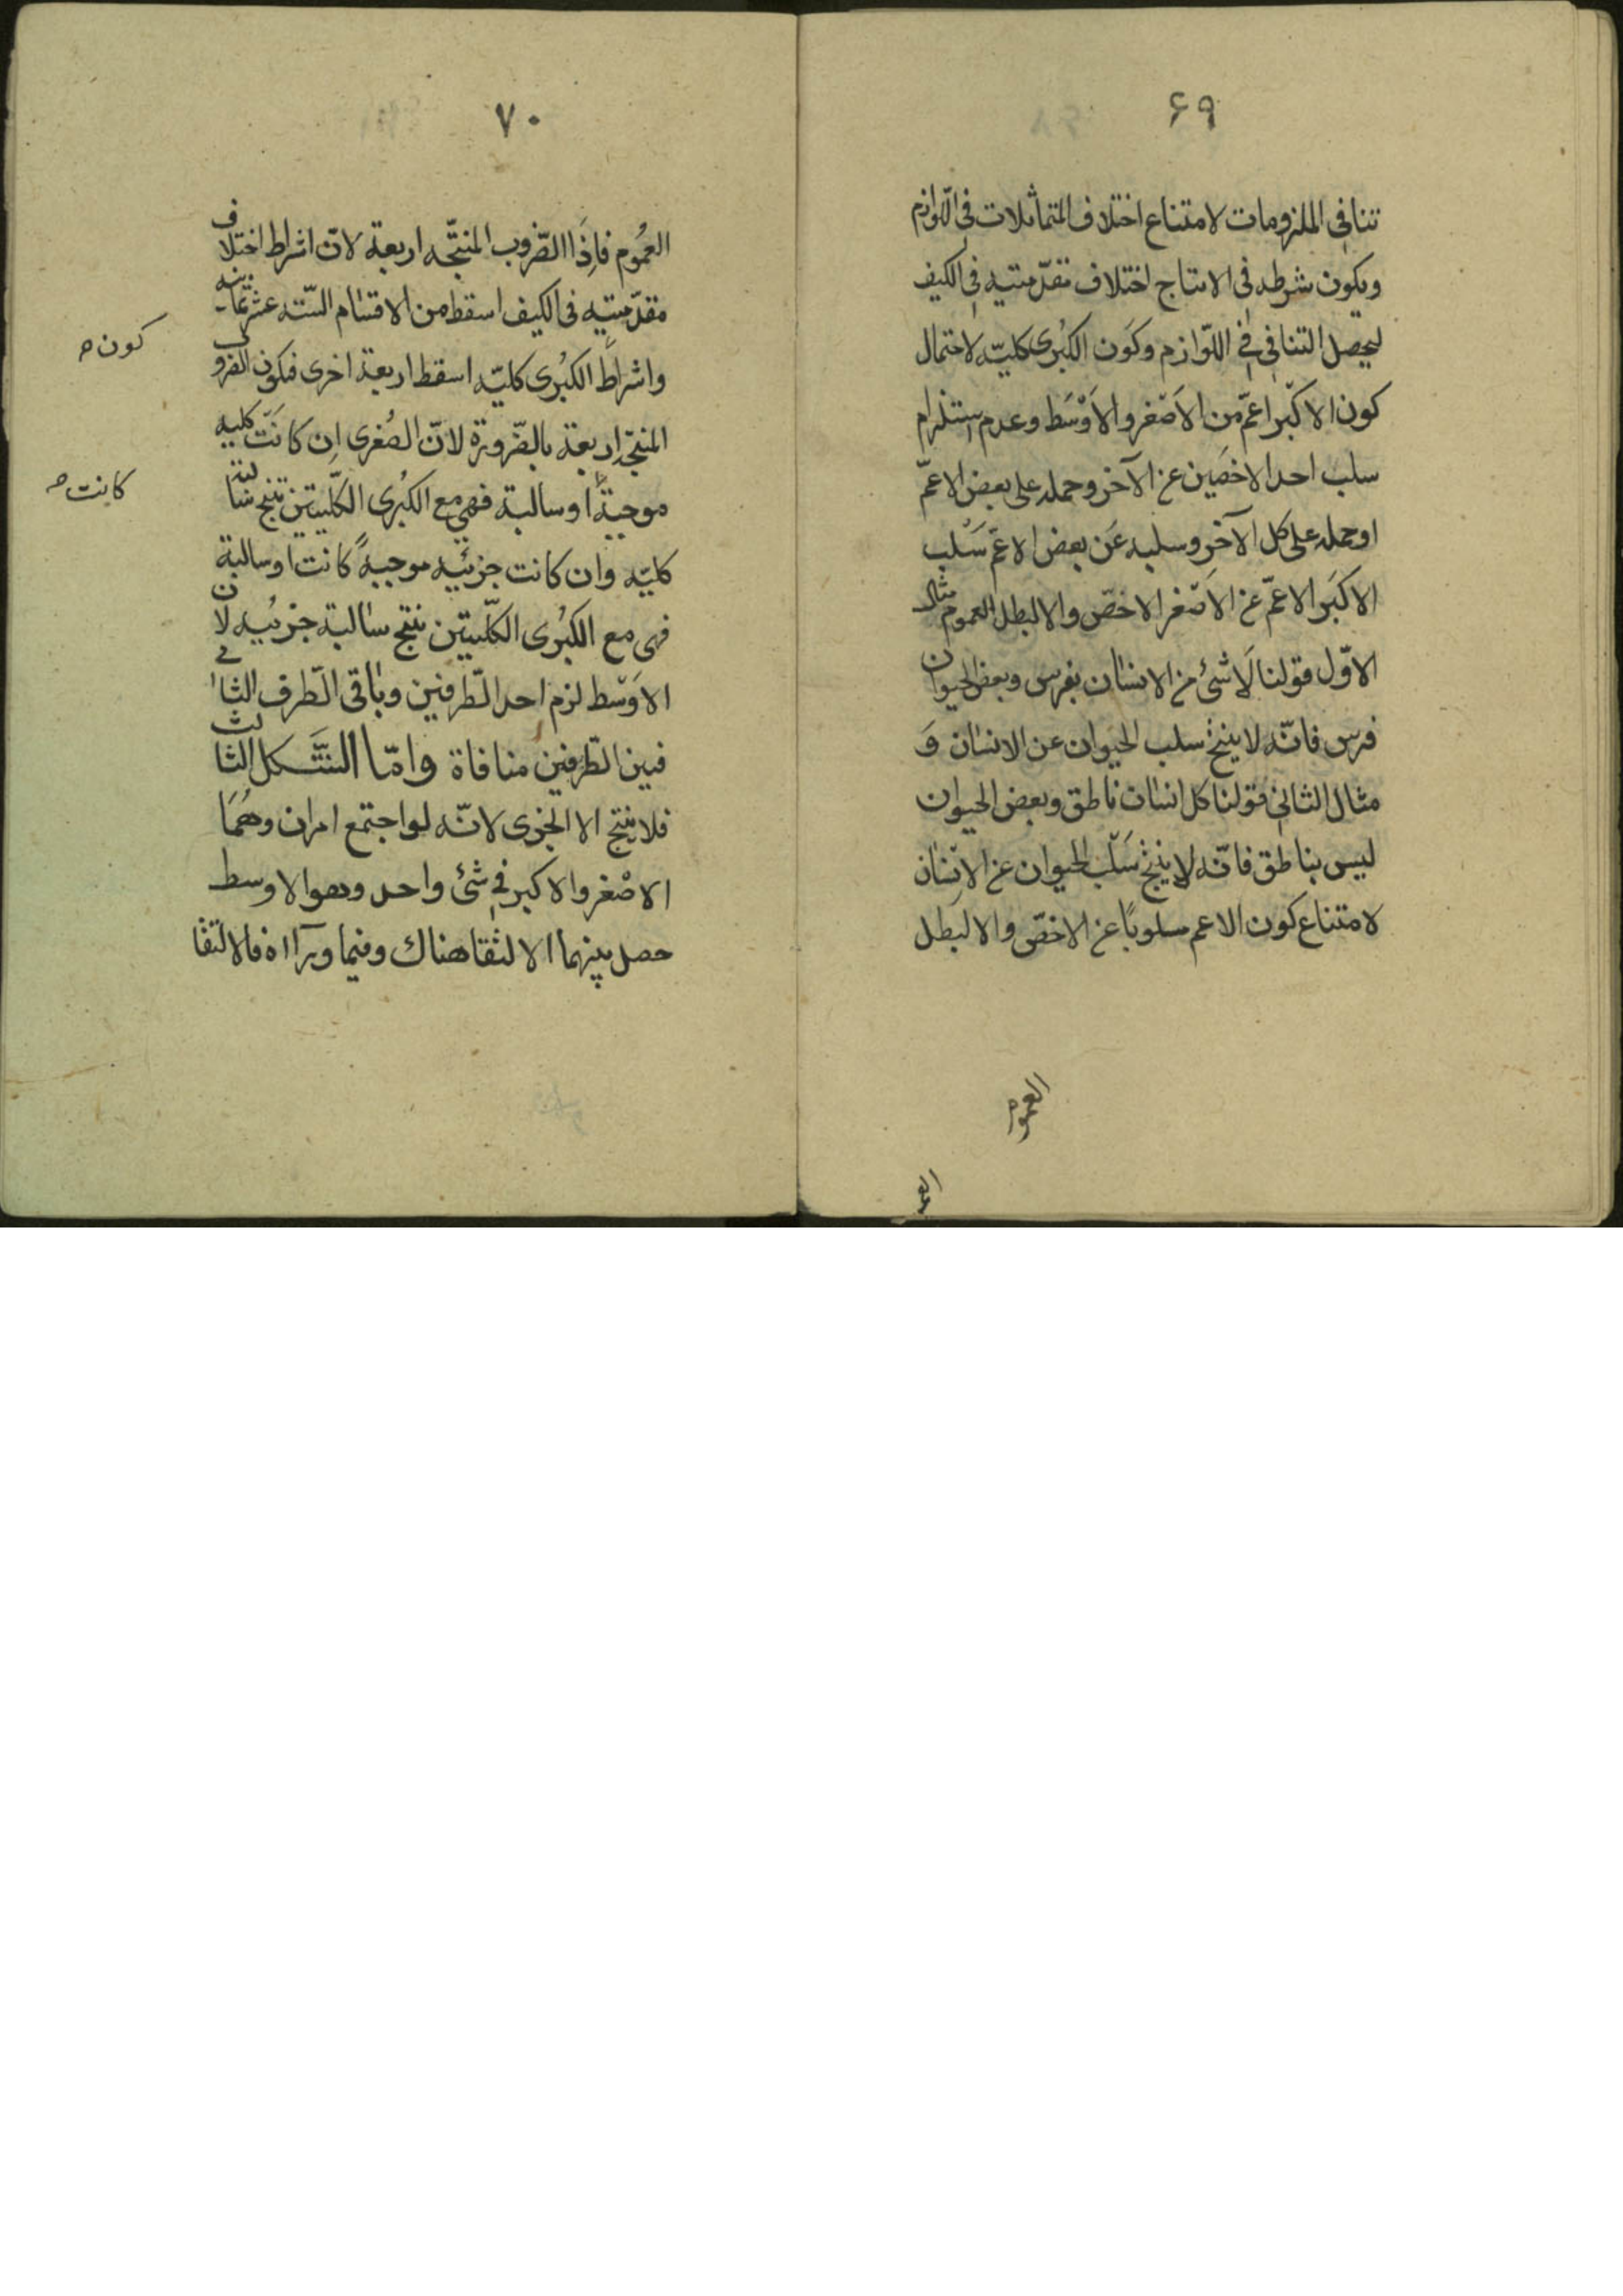 ۶۹
تنافی الملزومات لامتناع اختلاف المتماثلات فی اللّوازم
ویکون شرطه فی الانتاج اختلاف مقدّمتیه فی الکیف
لیحصل التنافی فی اللّوازم وکون الکبُری کلیّه لاحتمال
کون الاکبر اعمّ من الاَصْغر والاَوْسَط وعدم استلزام
سلب احد الاخصَین عن الآخر وحمله علی بعض الاعمّ
اوحمله علی کل الآخر وسلبه عَن بعض الاعمّ سَلب
الاکبَر الاعمّ عن الاَصْغر الاخصّ والا لبطل العموم مثال
الاوّل قولنا لَاشئ من الانسان بفرس وبعض الحیوان
فرس فانّه لا ینتج سلب الحیوان عن الانسان وَ
مثال الثانی قولنا کل انسان ناطق وبعض الحیوان
لیس بناطق فانّه لا ینتج سَلْب الحیوان عن الانسان
لامتناع کون الاعم مسلوبًا عن الاخصّ والا لبطل
العموم
۷۰
العمُوم فاِذَا الضّروب المنتجّه اربعة لانّ اشراط اختلاف
مقدّمتیه فی الکیف اسقط من الاقسام السّته عشر ثمانیه
واشراط الکبُری کلیّه اسقط اربعة اخری فیکون الضروب
کون
المنتجّه اربعة بالضّرورة لانّ الصُغری اِن کانَت کلیه
موجبةً او سالبة فهی مع الکبُری الکلّیتین تنتج سالبة
کانت
کلیّه وان کانت جزئیه موجبةً کانت او سالبة
فهی مع الکبُری الکلّیتین ینتج سالبة جزئیه لان
الاوَسْط لزم احد الطّرفین وباقی الطّرف الثانی
فبین الطّرفین منافاة وامّا الشَّکل الثالث
فلا ینتج الا الجزی لانّه لو اجتمع امران وهُمَا
الاصْغر والاکبر فی شئ واحد وهو الاوسط
حصل بینهما الالتقا هناك وفیما ورآاه فالالتقا